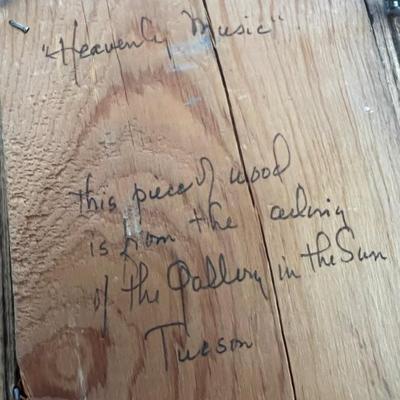 "Heavenly Music"
this piece of wood
is from the ceiling
of the Gallery in the Sun
Tucson